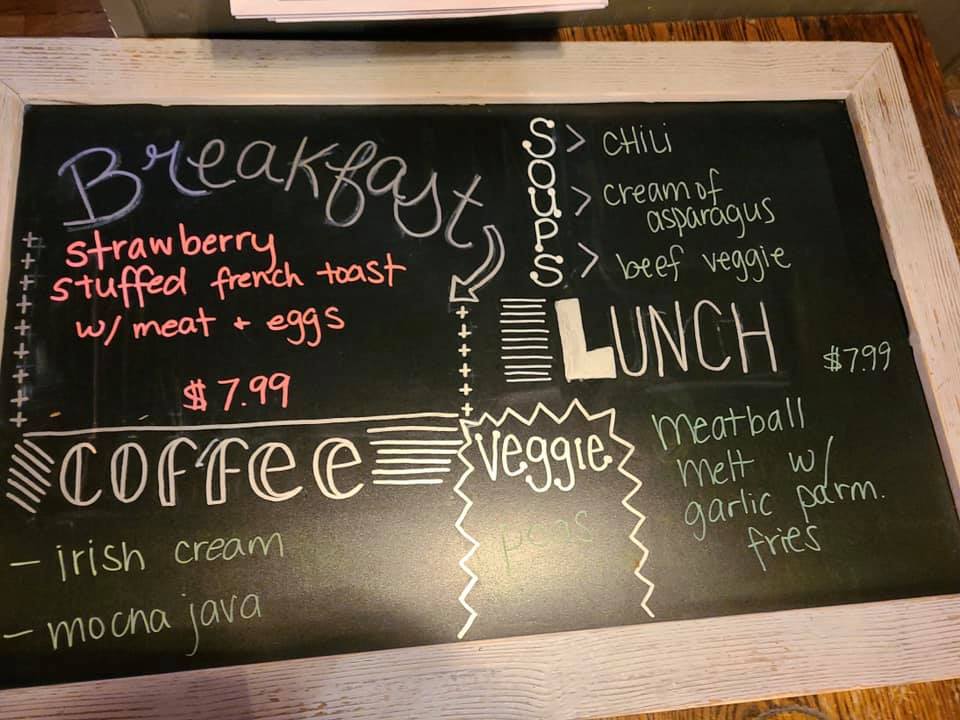 Breakfast
strawberry
stuffed french toast
w/ meat + eggs
$7.99
SOUPS
> CHILI
> cream of
asparagus
> beef veggie
LUNCH
$7.99
Meatball
melt w/
garlic parm.
fries
COFFEE
- irish cream
- mocha java
veggie
peas